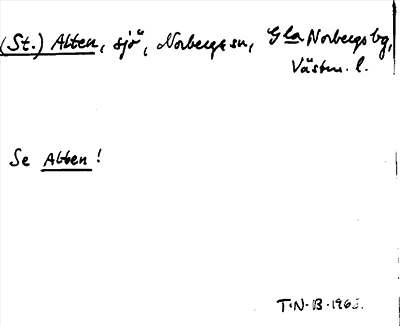 (St.) Alten, sjö, Norbergs sn, Gla Norbergs bg,
Västm. l.
Se Alten!
T.N.B. 1963.